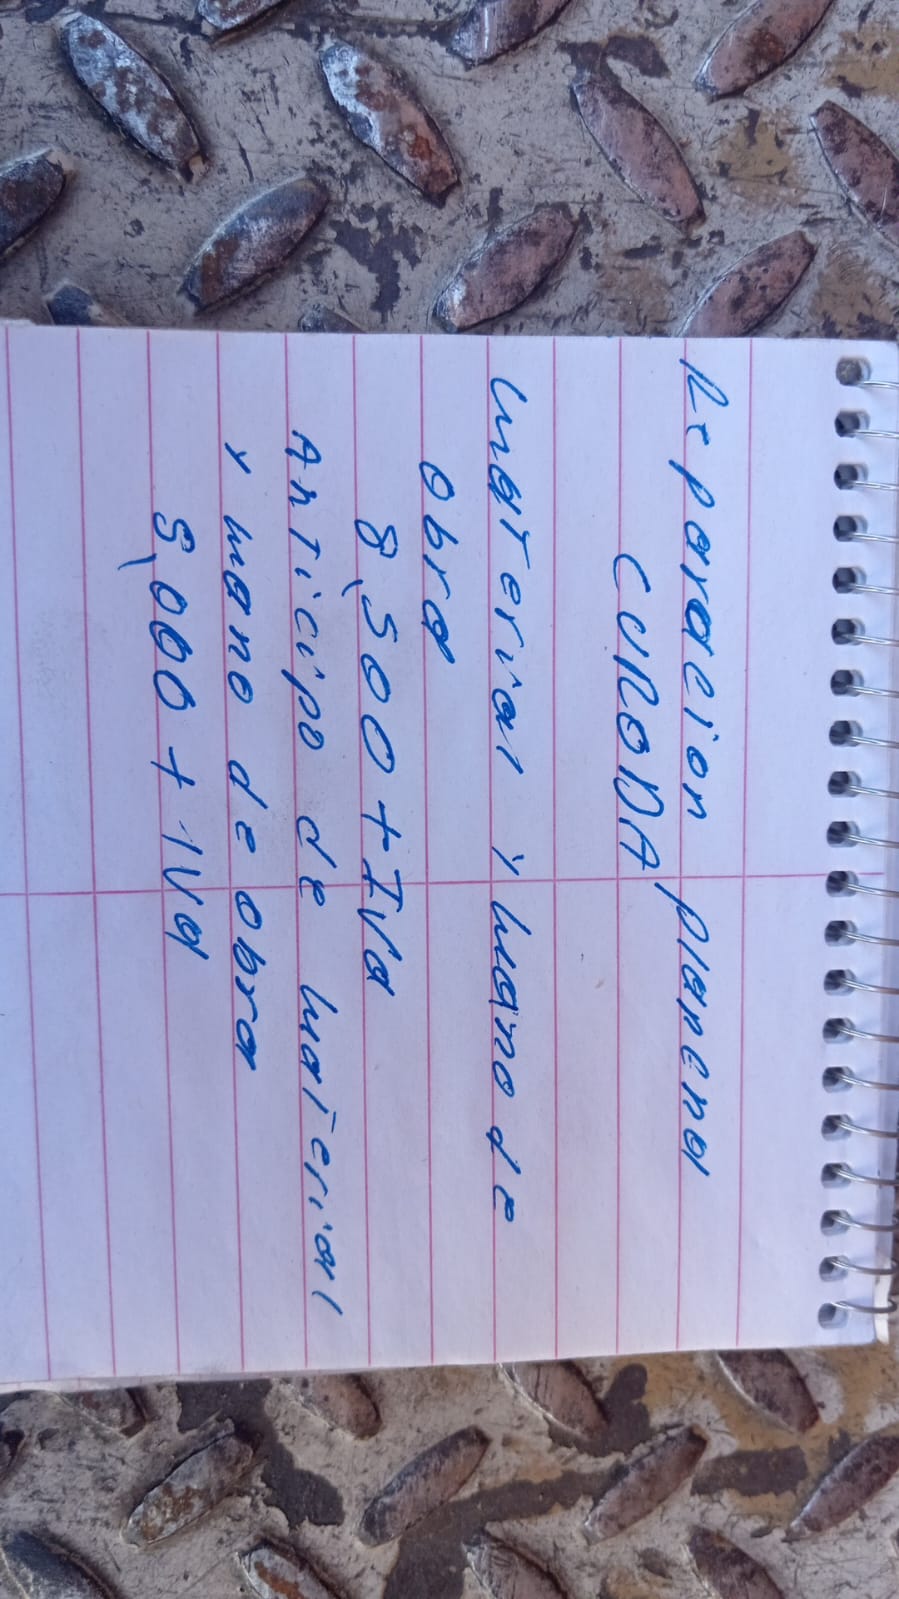 Reparacion planena
CURODA
material y mano de
obra
8,500 + Iva
Anticipo de material
y mano de obra
5,000 + Iva